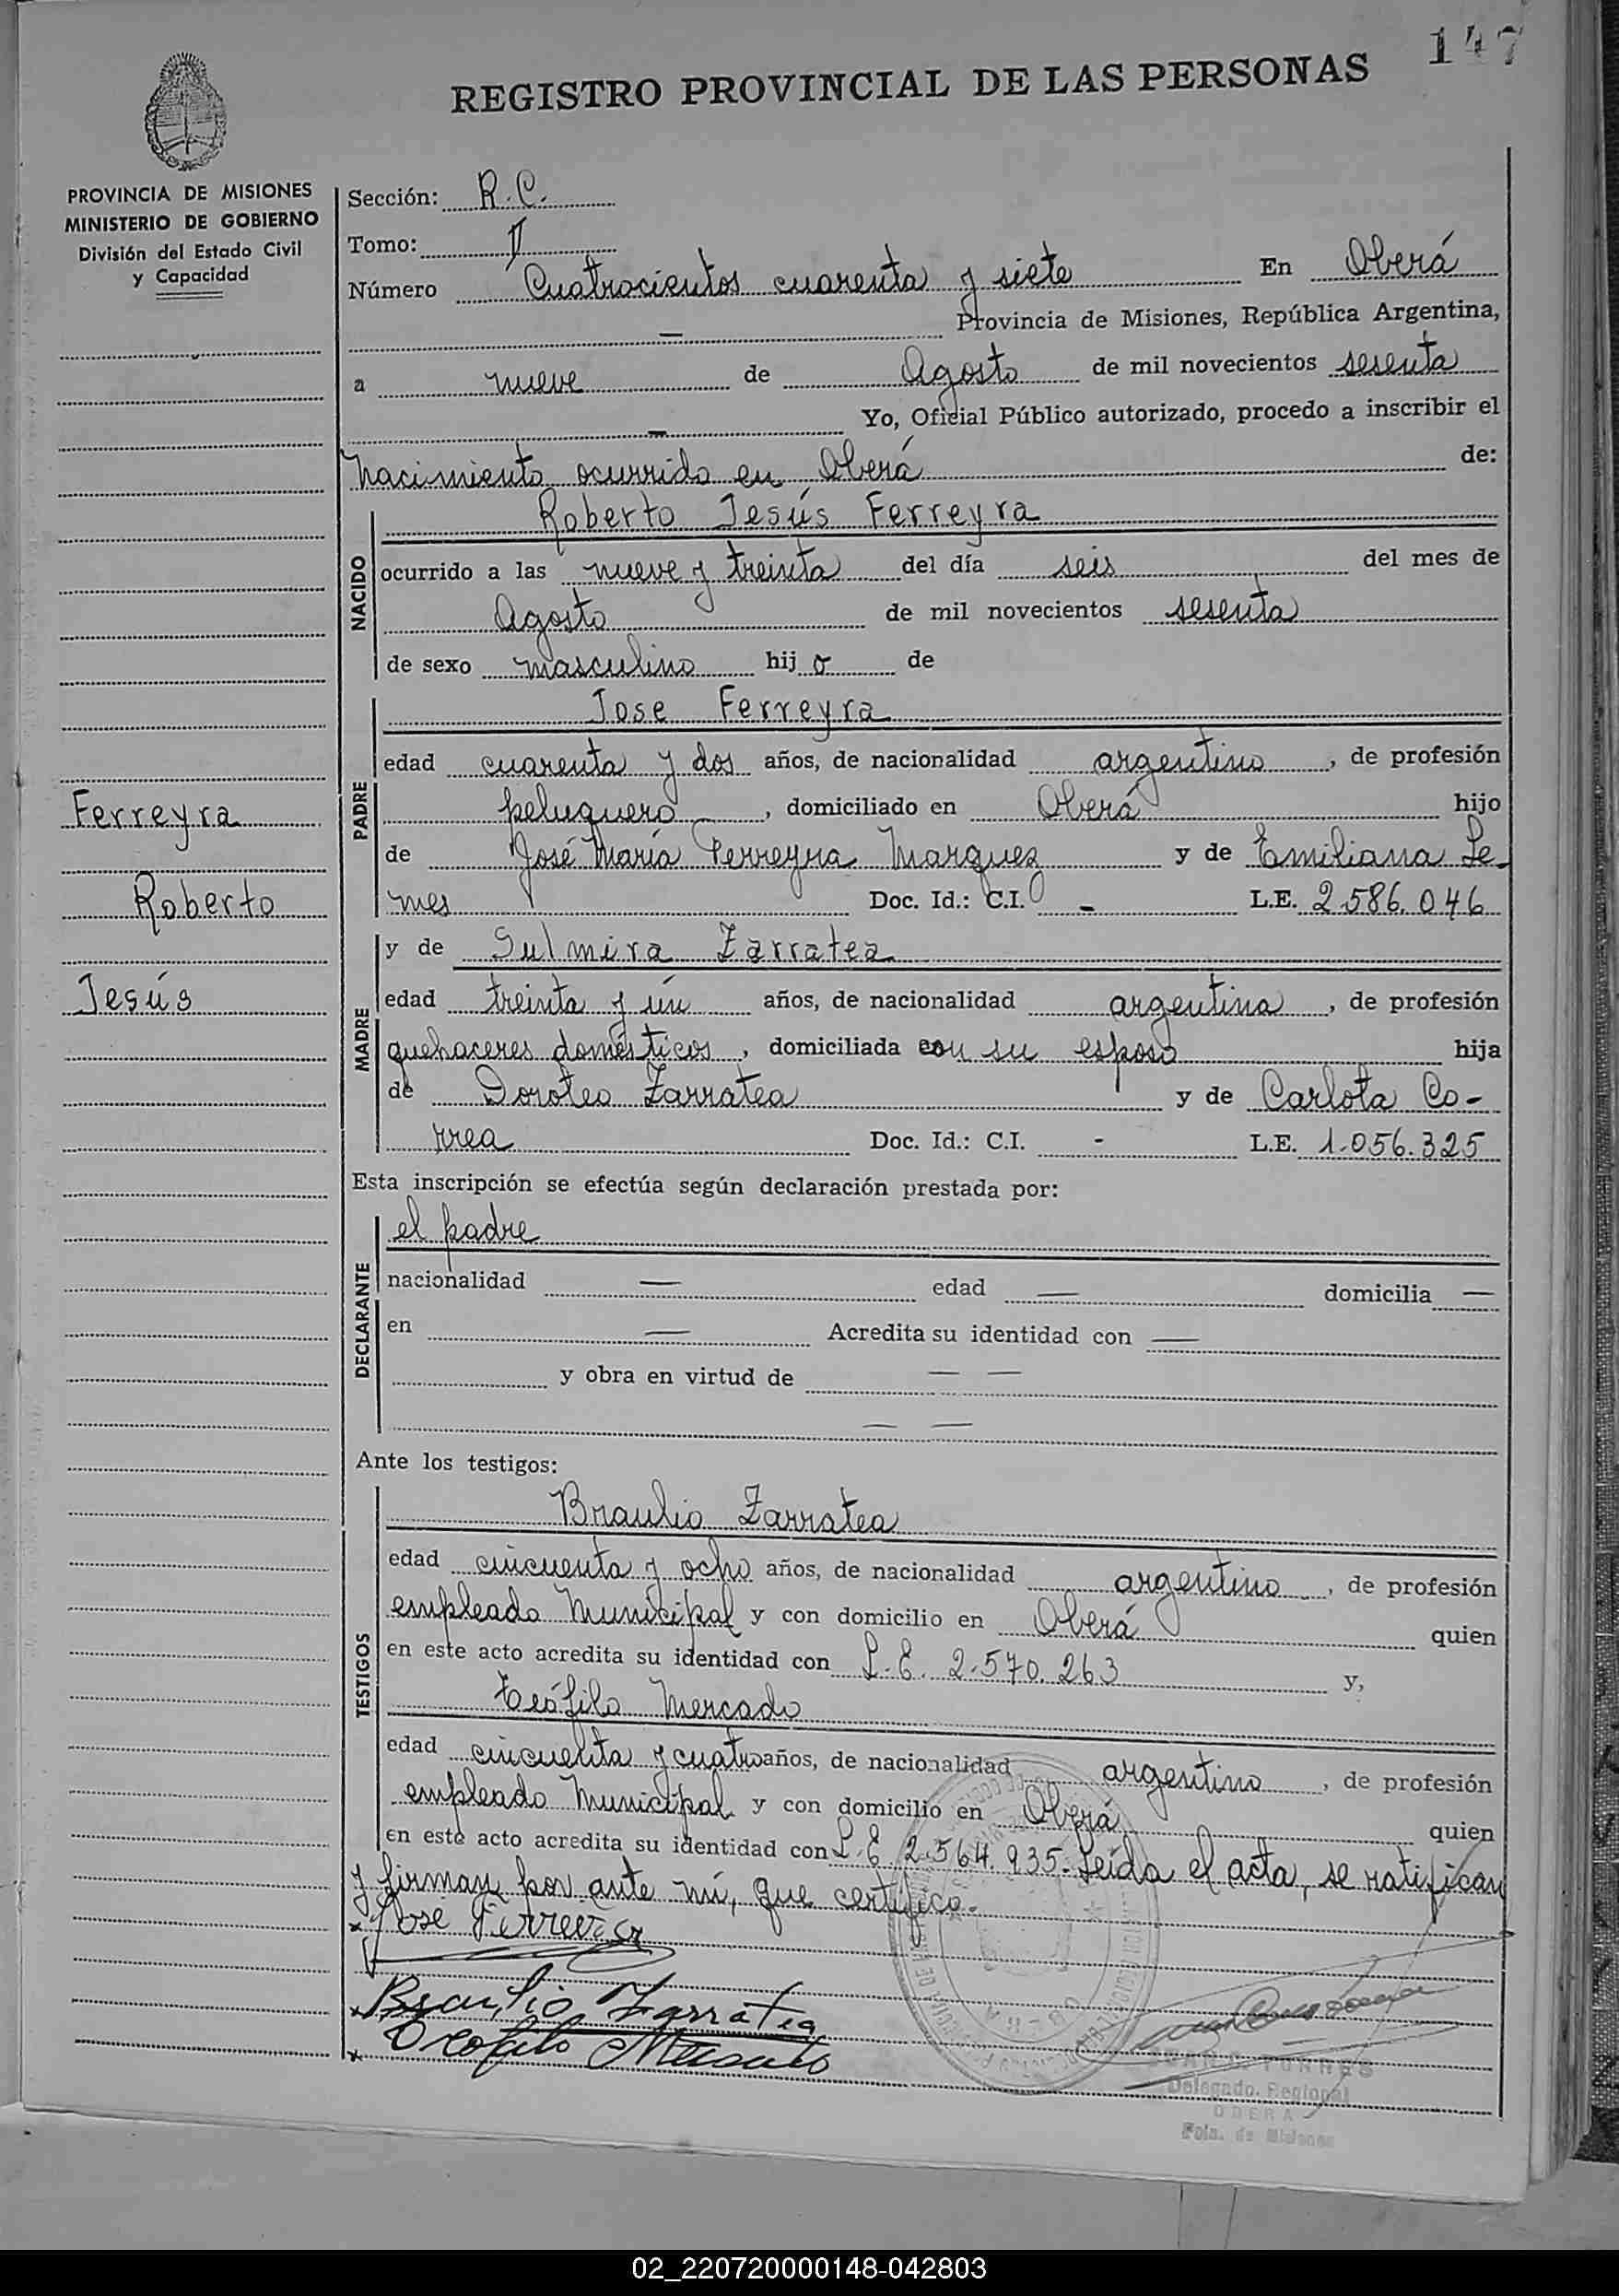 147
REGISTRO PROVINCIAL DE LAS PERSONAS
PROVINCIA DE MISIONES
MINISTERIO DE GOBIERNO
División del Estado Civil
y Capacidad
Sección: R.C.
Tomo: II
Número Cuatrocientos cuarenta y siete En Oberá
— Provincia de Misiones, República Argentina,
a nueve de Agosto de mil novecientos sesenta
— Yo, Oficial Público autorizado, procedo a inscribir el
Nacimiento ocurrido en Oberá de:
NACIDO
Roberto Jesús Ferreyra
ocurrido a las nueve y treinta del día seis del mes de
Agosto de mil novecientos sesenta
de sexo masculino hij o de
PADRE
Jose Ferreyra
edad cuarenta y dos años, de nacionalidad argentino, de profesión
peluquero, domiciliado en Oberá hijo
de José María Ferreyra Marquez y de Emiliana Le-
mes Doc. Id.: C.I. - L.E. 2.586.046
Ferreyra
Roberto
Jesús
MADRE
y de Sulmira Zarratea
edad treinta y un años, de nacionalidad argentina, de profesión
quehaceres domésticos, domiciliada con su esposo hija
de Doroteo Zarratea y de Carlota Co-
rrea Doc. Id.: C.I. - L.E. 1.056.325
Esta inscripción se efectúa según declaración prestada por:
DECLARANTE
el padre
nacionalidad — edad — domicilia —
en — Acredita su identidad con —
y obra en virtud de — —
— —
Ante los testigos:
TESTIGOS
Braulio Zarratea
edad cincuenta y ocho años, de nacionalidad argentino, de profesión
empleado Municipal y con domicilio en Oberá quien
en este acto acredita su identidad con L.E. 2.570.263 y,
Teófilo Mercado
edad cincuenta y cuatro años, de nacionalidad argentino, de profesión
empleado Municipal y con domicilio en Oberá quien
en este acto acredita su identidad con L.E 2.564.935. Leída el acta, se ratifican
y firman por ante mí, que certifico.
Jose Ferreyra
Braulio Zarratea
Teofilo Mercado
OBERA
TORRES
Delegado Regional
OBERA
Pcia. de Misiones
02_220720000148-042803